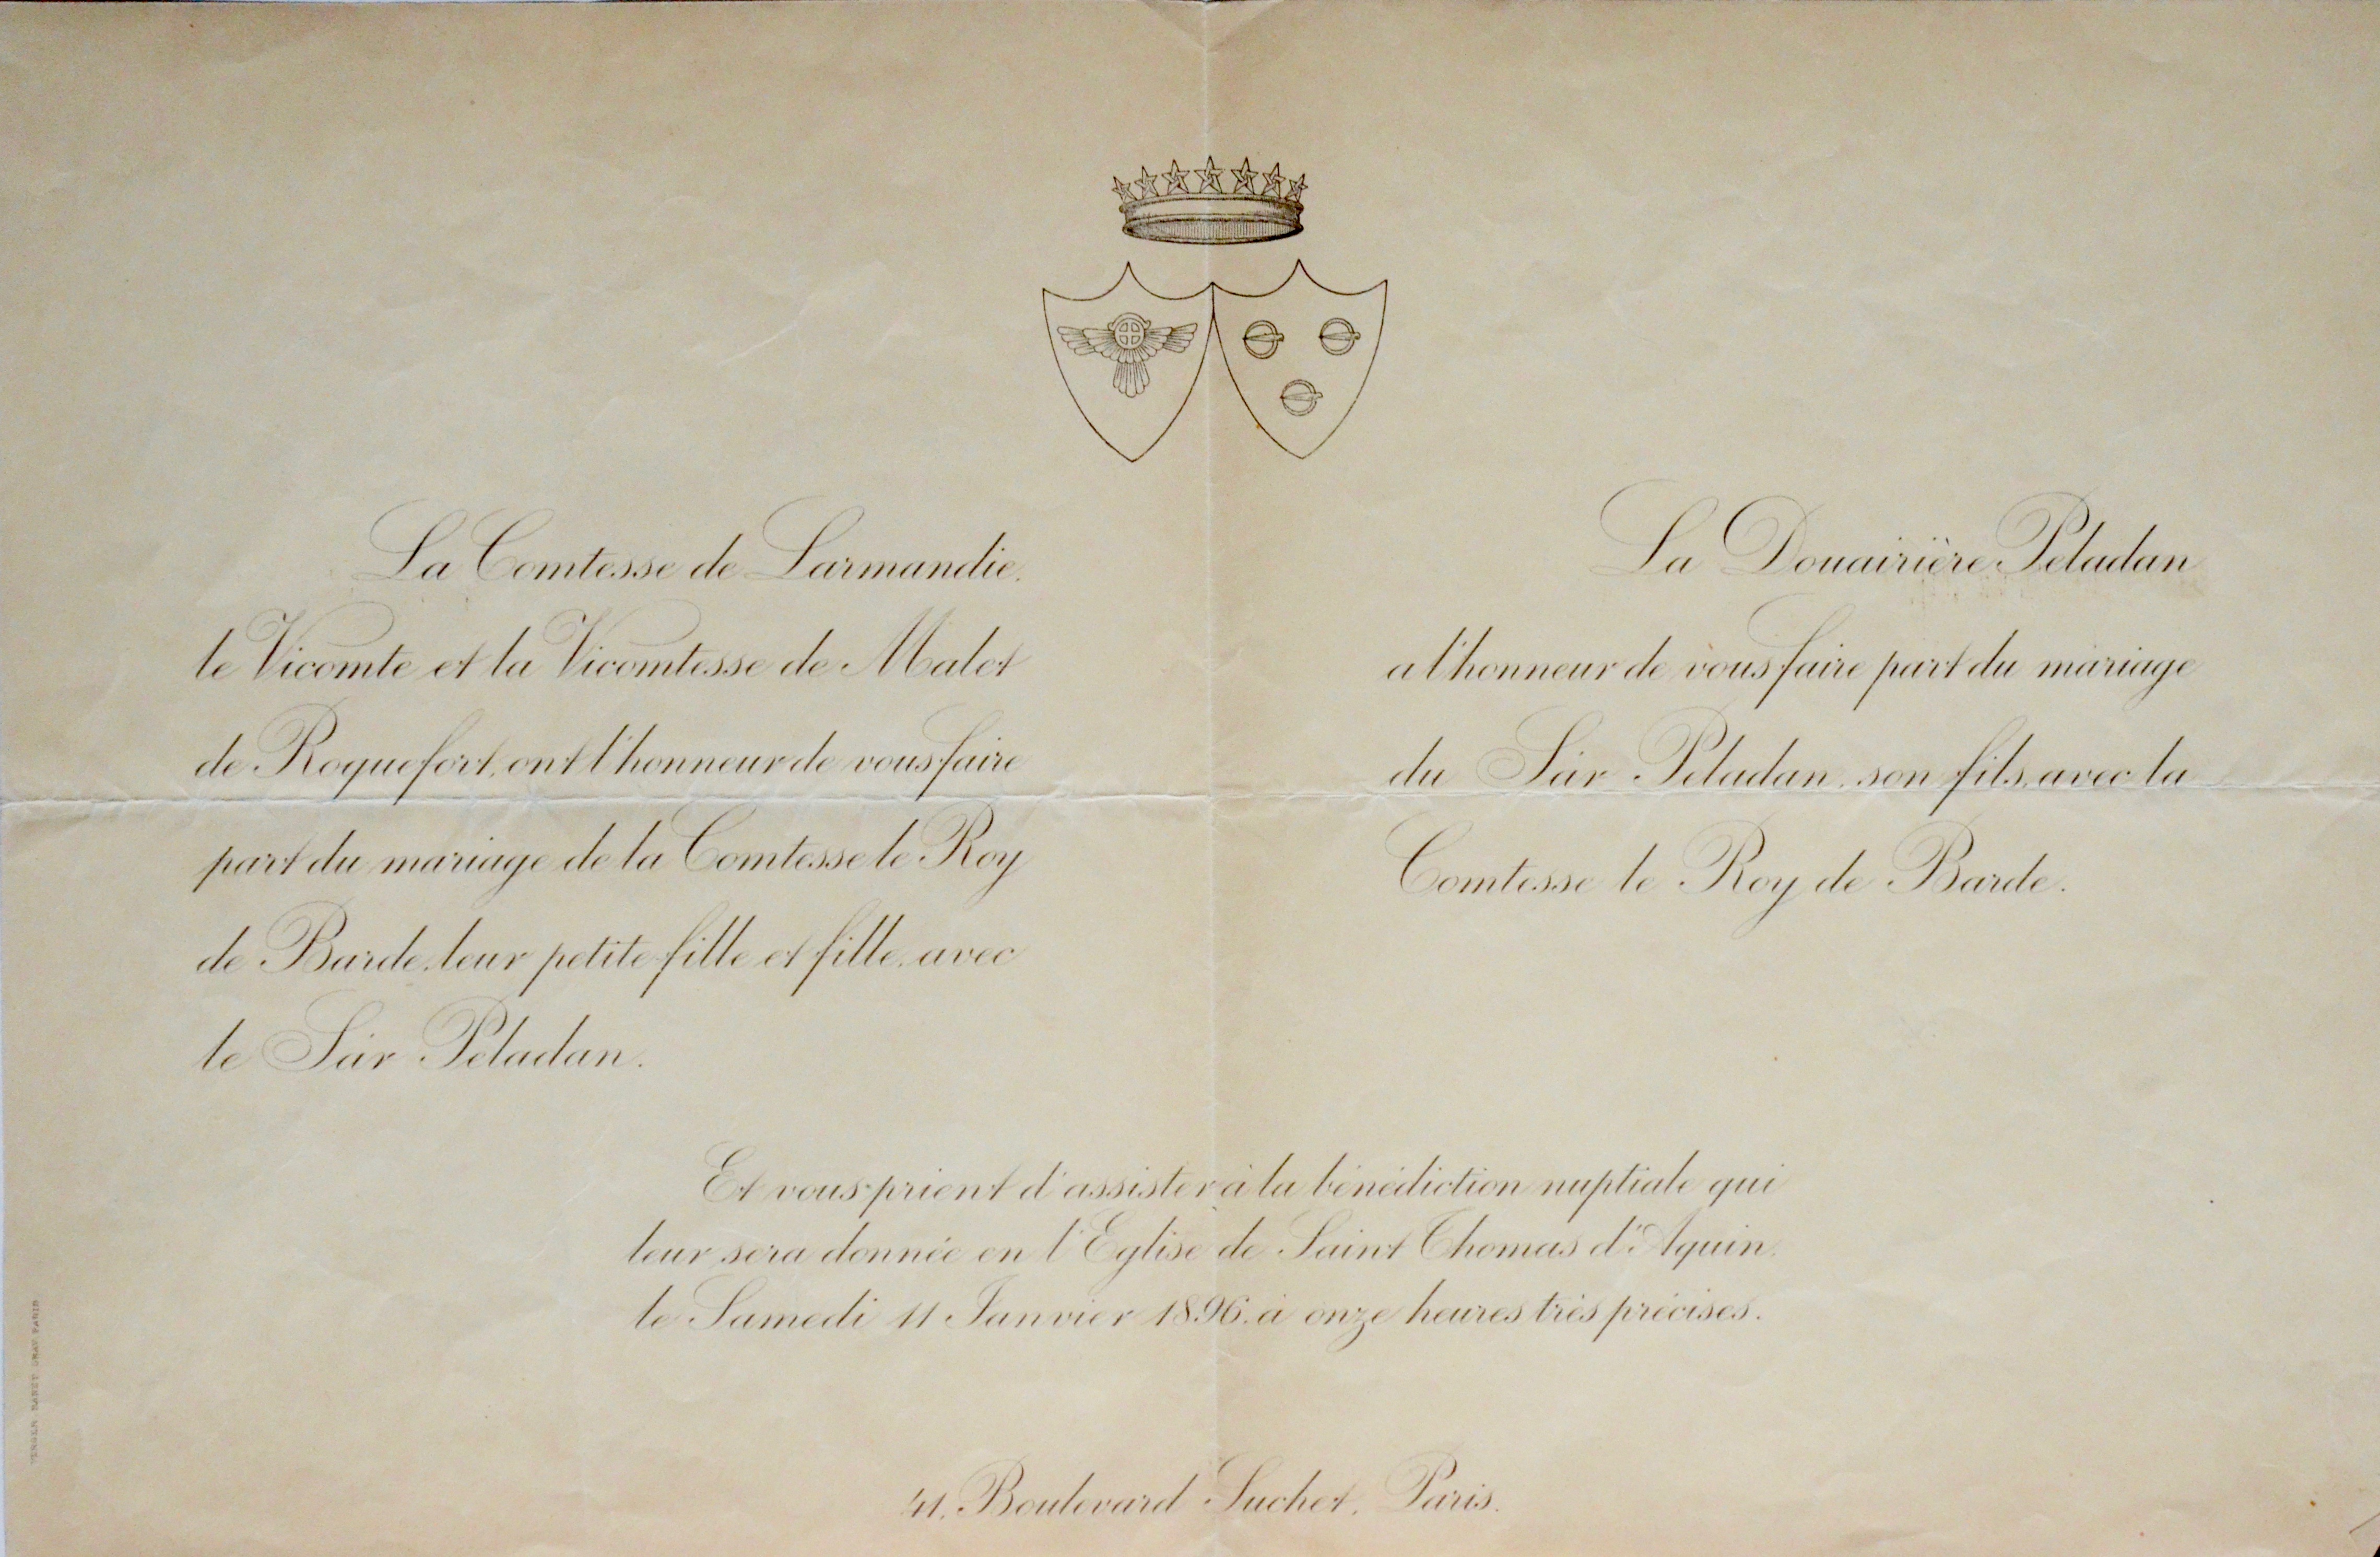 La Comtesse de Larmandie,
le Vicomte et la Vicomtesse de Malet
de Roquefort, ont l'honneur de vous faire
part du mariage de la Comtesse le Roy
de Barde, leur petite fille et fille, avec
le Sâr Peladan.
La Douairière Peladan
a l'honneur de vous faire part du mariage
du Sâr Peladan, son fils, avec la
Comtesse le Roy de Barde.
Et vous prient d'assister à la bénédiction nuptiale qui
leur sera donnée en l'Eglise de Saint Thomas d'Aquin,
le Samedi 11 Janvier 1896, à onze heures très précises.
41, Boulevard Suchet, Paris.
PARIS